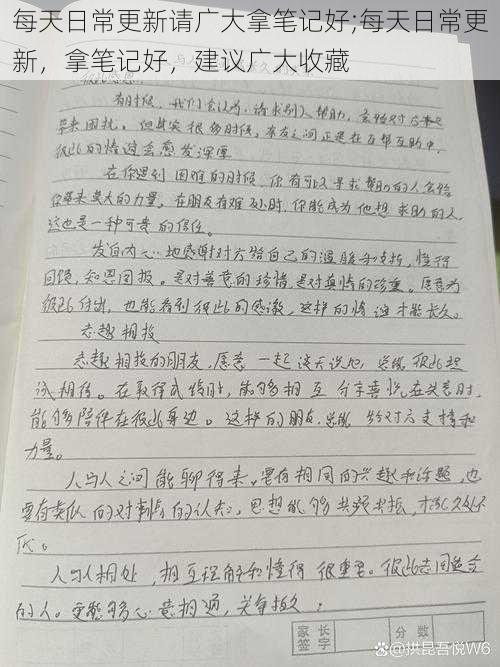 每天日常更新请广大拿笔记好;每天日常更
新，拿笔记好，建议广大收藏
彼此感恩
有时候，我们会认为，请求别人帮助，会给对方带
来困扰。但其实很多时候，朋友之间正是在互帮互助中，
彼此的情谊会愈发深厚
在你遇到困难的时候，你有可以寻求帮助的人会给
你带来莫大的力量。在朋友有难处时，你能成为他想求助的人，
这也是一种可贵的信任。
发自内心地感谢对方给自己的温暖和支持，懂得
回馈，知恩图报。是对善意的珍惜，是对真情的珍重。愿意为
彼此付出，也能看到彼此的感激，这样的情谊才能长久。
志趣相投
志趣相投的朋友，愿意一起谈天说地，总能彼此坦
诚相待。在取得成绩时，能够相互分享喜悦，在失意时，
能够陪伴在彼此身边。这样的朋友，总能给对方支持和
力量。
人与人之间能聊得来，要有相同的兴趣和话题，也
要有类似的对事情的认知，思想能够共频共振，才能久处不
厌。
人与人相处，相互理解和懂得很重要。彼此志同道合
的人。更能够心意相通，关系持久
家长
签字
分数
@拱昆吾悦W6